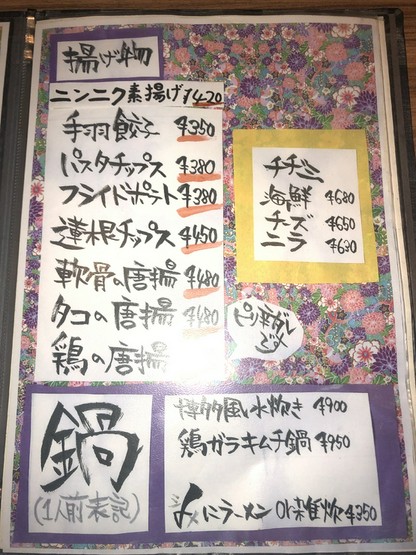 揚げ物
ニンニク素揚げ ¥420
手羽餃子 ¥350
パスタチップス ¥380
フライドポテト ¥380
蓮根チップス ¥450
軟骨の唐揚 ¥480
タコの唐揚 ¥480
鶏の唐揚
チヂミ
海鮮 ¥680
チーズ ¥650
ニラ ¥630
ピリ辛ダレ
です
鍋
(1人前表記)
博多風水炊き ¥900
鶏ガラキムチ鍋 ¥950
〆にラーメン or 雑炊 ¥350